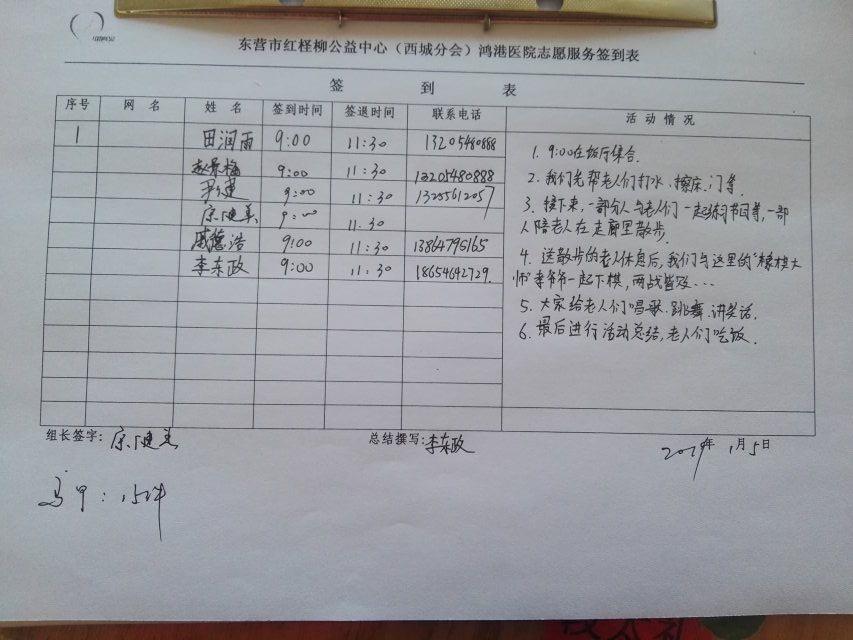 东营市红柽柳公益中心（西城分会）鸿港医院志愿服务签到表
签 到 表
序号 网 名 姓 名 签到时间 签退时间 联系电话 活 动 情 况
1 田润雨 9:00 11:30 13205480888
赵景梅 9:00 11:30 13205480888
尹建 9:00 11:30
康健美 9:00 11.30
戚懿浩 9:00 11:30 13864795165
李东政 9:00 11:30 18654642729.
1. 9:00在饭厅集合.
2. 我们先帮老人们打水、擦床、门等.
3. 接下来,一部分人与老人们一起练习节目等,一部
人陪老人在走廊里散步.
4. 送散步的老人休息后,我们与这里的“棋大
师”李爷爷一起下棋,两战皆...
5. 大家给老人们唱歌.跳舞.讲笑话.
6. 最后进行活动总结,老人们吃饭.
组长签字: 康健美
总结撰写: 李东政
2019年 1月5日
马甲: 15件